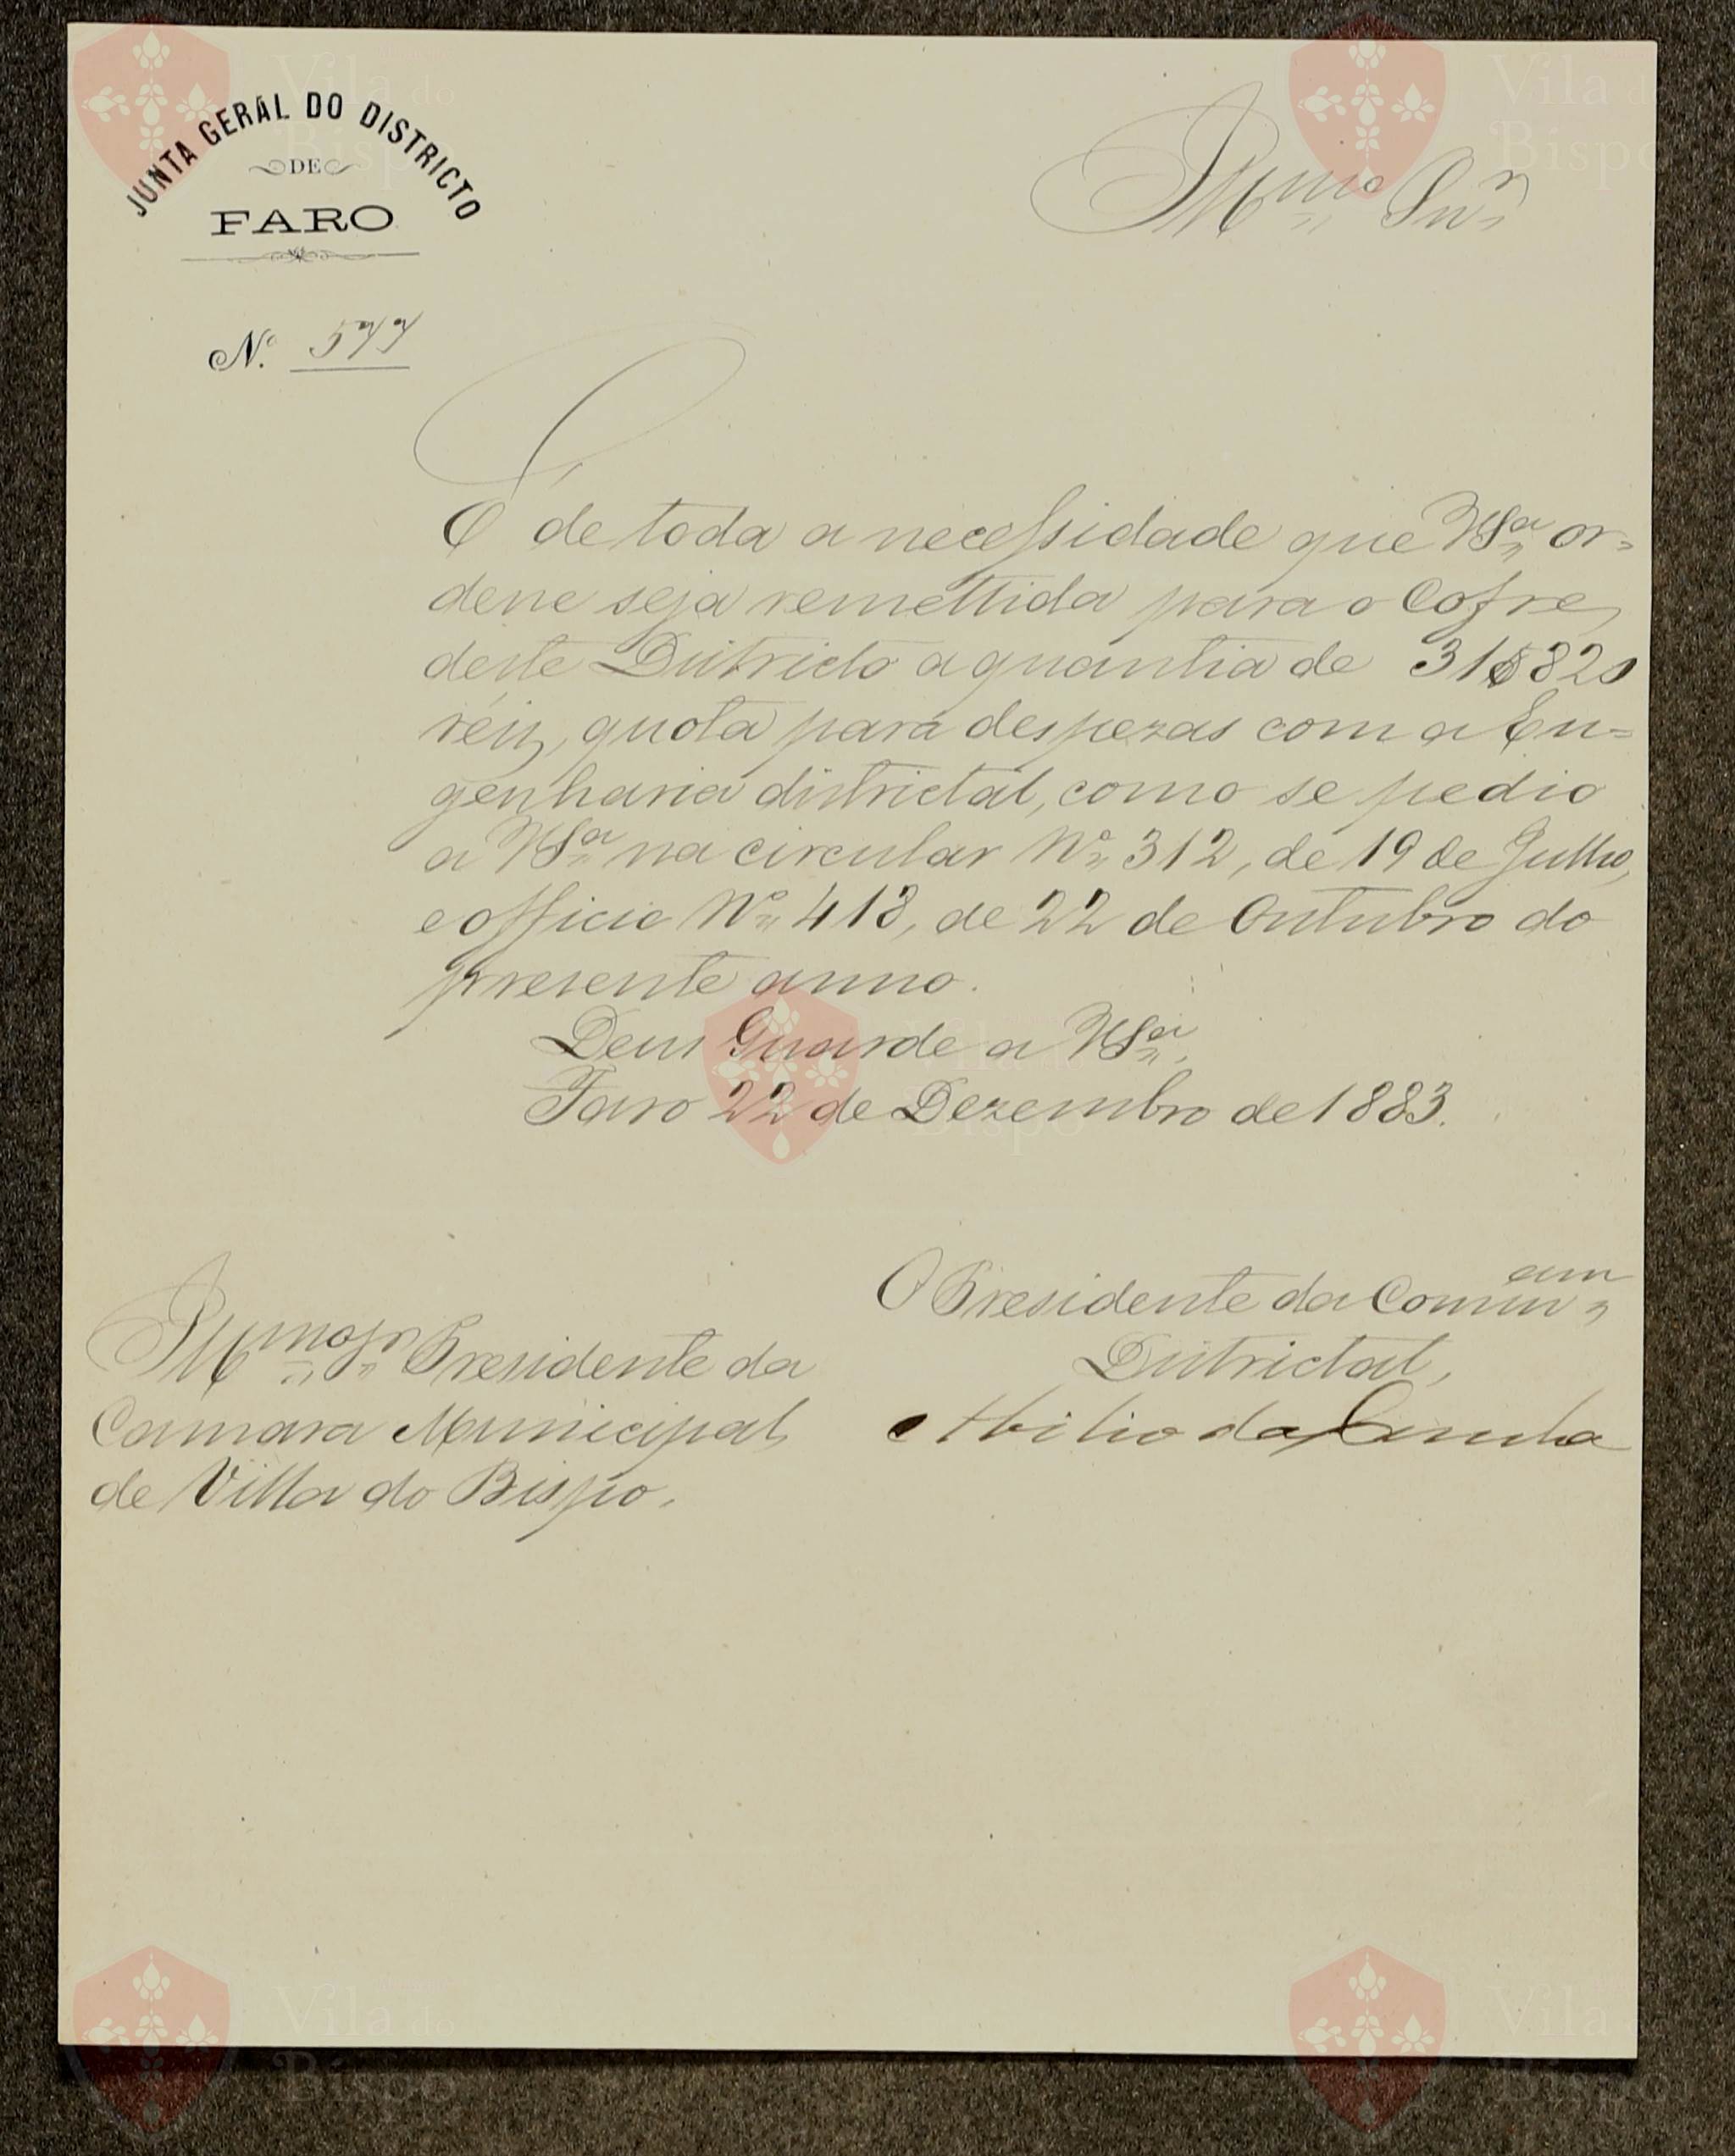 JUNTA GERAL DO DISTRICTO
DE
FARO
N.º 577
Illmo Snr
É de toda a necessidade que VSa or=
dene seja remettida para o Cofre
deste Districto a quantia de 31$820
réis, quota para despezas com a En=
genharia districtal, como se pedio
a VSa na circular Nº 312, de 19 de Julho,
e officio Nº 418, de 22 de Outubro do
presente anno.
Deus Guarde a VSa
Faro 22 de Dezembro de 1883.
O Presidente da Commam
Districtal,
Abilio da Cunha
Illmo Sr Presidente da
Camara Municipal
de Villa do Bispo.
Vila do
Bispo